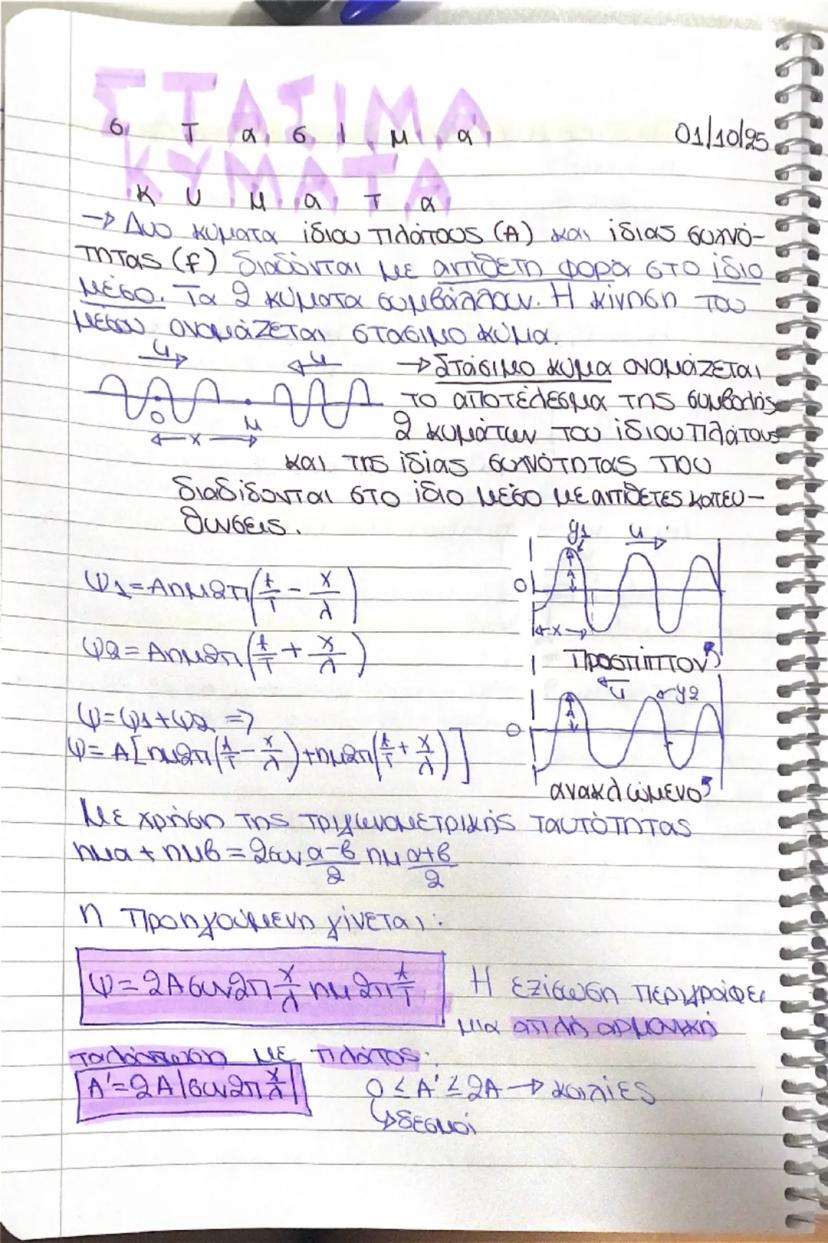 ΣΤΑΣΙΜΑ
σ τ α σ ι μ α
01/10/25
ΚΥΜΑΤΑ
κ υ μ α τ α
→ Δυο κύματα ίδιου πλάτους (Α) και ίδιας συχνό-
τητας (f) διαδόνται με αντίθετη φορά στο ίδιο
μέσο. Τα 2 κύματα συμβάλλουν. Η κίνηση του
μέσου ονομάζεται στάσιμο κύμα.
u u → Στάσιμο κύμα ονομάζεται
το αποτέλεσμα της συμβολής
O M
x
2 κυμάτων του ίδιου πλάτους
και της ίδιας συχνότητας που
διαδίδονται στο ίδιο μέσο με αντίθετες κατευ-
θύνσεις.
y1 u
ψ1=Αημ2π(t/T - x/λ)
O A
x
ψ2=Αημ2π(t/T + x/λ)
προσπίπτον
u y2
ψ=ψ1+ψ2 =>
O A
ψ=Α[ημ2π(t/T - x/λ)+ημ2π(t/T + x/λ)]
ανακλώμενο
Με χρήση της τριγωνομετρικής ταυτότητας
ημα + ημβ = 2συν α-β/2 ημ α+β/2
η προηγούμενη γίνεται:
ψ=2Ασυν2π x/λ ημ2π t/T
Η εξίσωση περιγράφει
μια απλή αρμονική
ταλάντωση με πλάτος:
Α'=2Α|συν2π x/λ|
0 ≤ Α' ≤ 2Α → κοιλίες
↳ δεσμοί